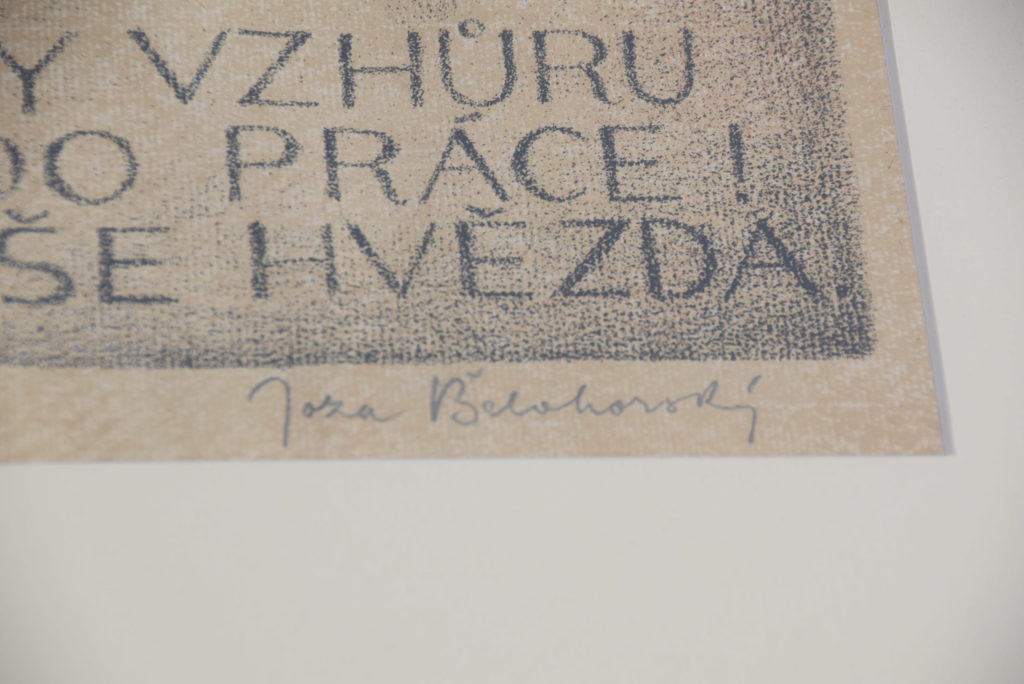 Y VZHŮRU
DO PRÁCE!
ŠE HVĚZDA
Joža Bělohorský